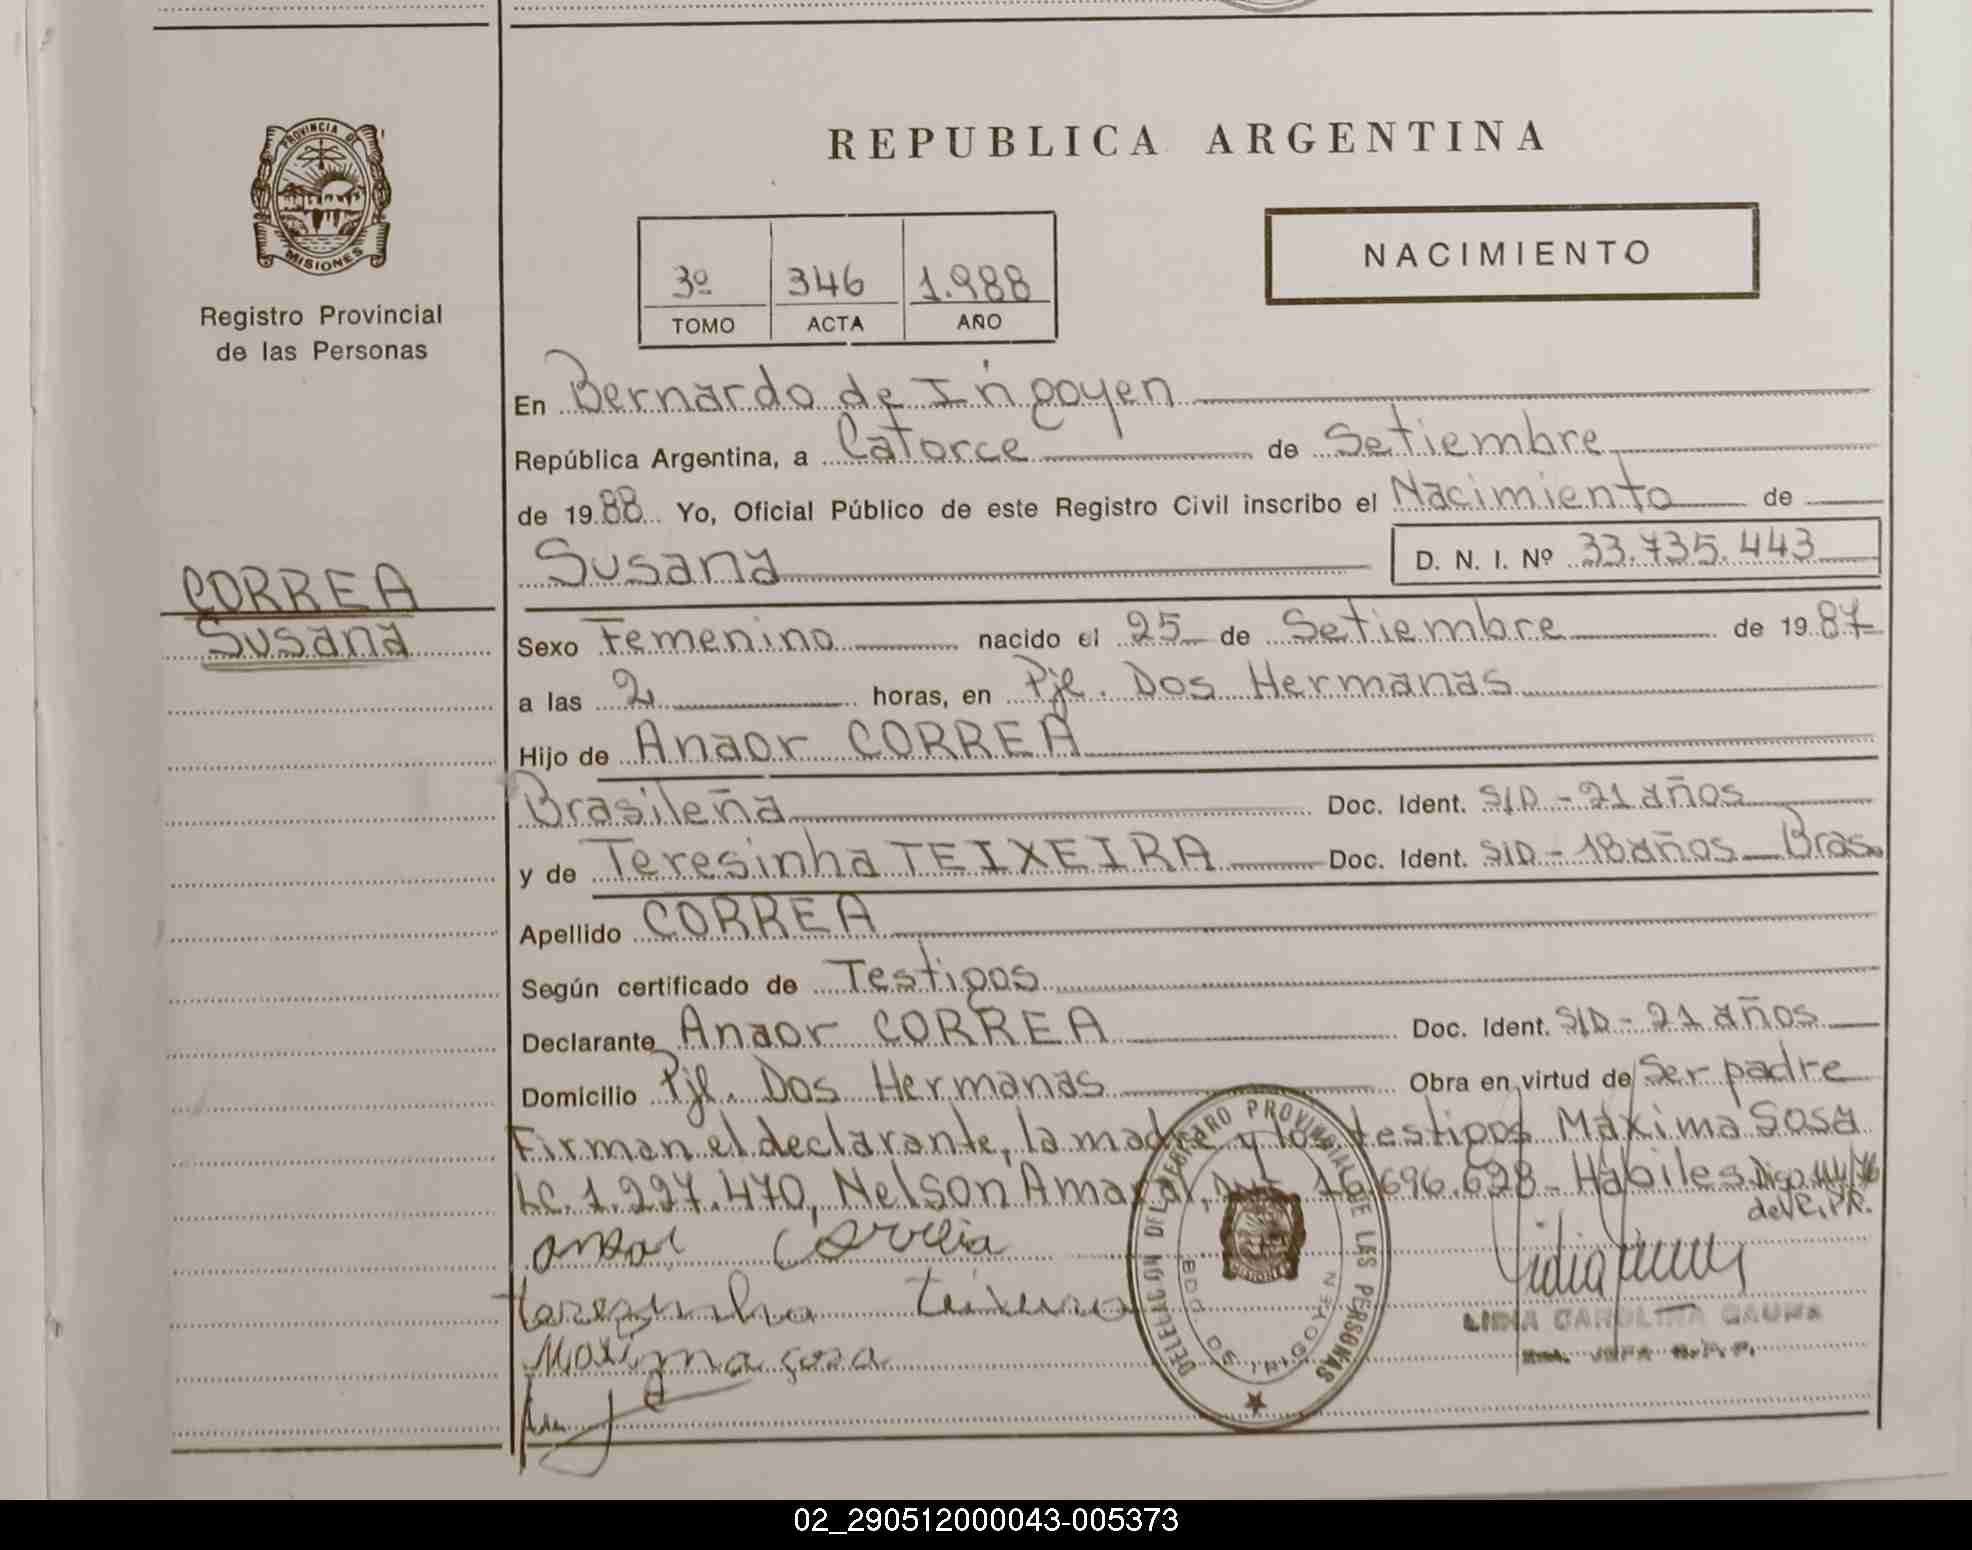 PROVINCIA DE
MISIONES
Registro Provincial
de las Personas
CORREA
Susana
REPUBLICA ARGENTINA
NACIMIENTO
3º 346 1.988
TOMO ACTA AÑO
En Bernardo de Irigoyen
República Argentina, a Catorce de Setiembre
de 1988 Yo, Oficial Público de este Registro Civil inscribo el Nacimiento de
Susana D. N. I. Nº 33.735.443
Sexo Femenino nacido el 25 de Setiembre de 1987
a las 2 horas, en Pje. Dos Hermanas
Hijo de Anaor CORREA
Brasileña Doc. Ident. S/D - 21 años
y de Teresinha TEIXEIRA Doc. Ident. S/D - 18 años Bras.
Apellido CORREA
Según certificado de Testigos
Declarante Anaor CORREA Doc. Ident. S/D - 21 años
Domicilio Pje. Dos Hermanas Obra en virtud de Ser padre
Firman el declarante, la madre y los testigos Máxima Sosa
LC. 1.227.470, Nelson Amaral, 16.696.628 - Hábiles Digo
anaor Correia
teresinha Teixeira
Maxima sosa
DELEGACION DEL REGISTRO PROVINCIAL DE LAS PERSONAS
BDO. DE IRIGOYEN
MISIONES
LIDIA CAROLINA GAUNA
02_290512000043-005373